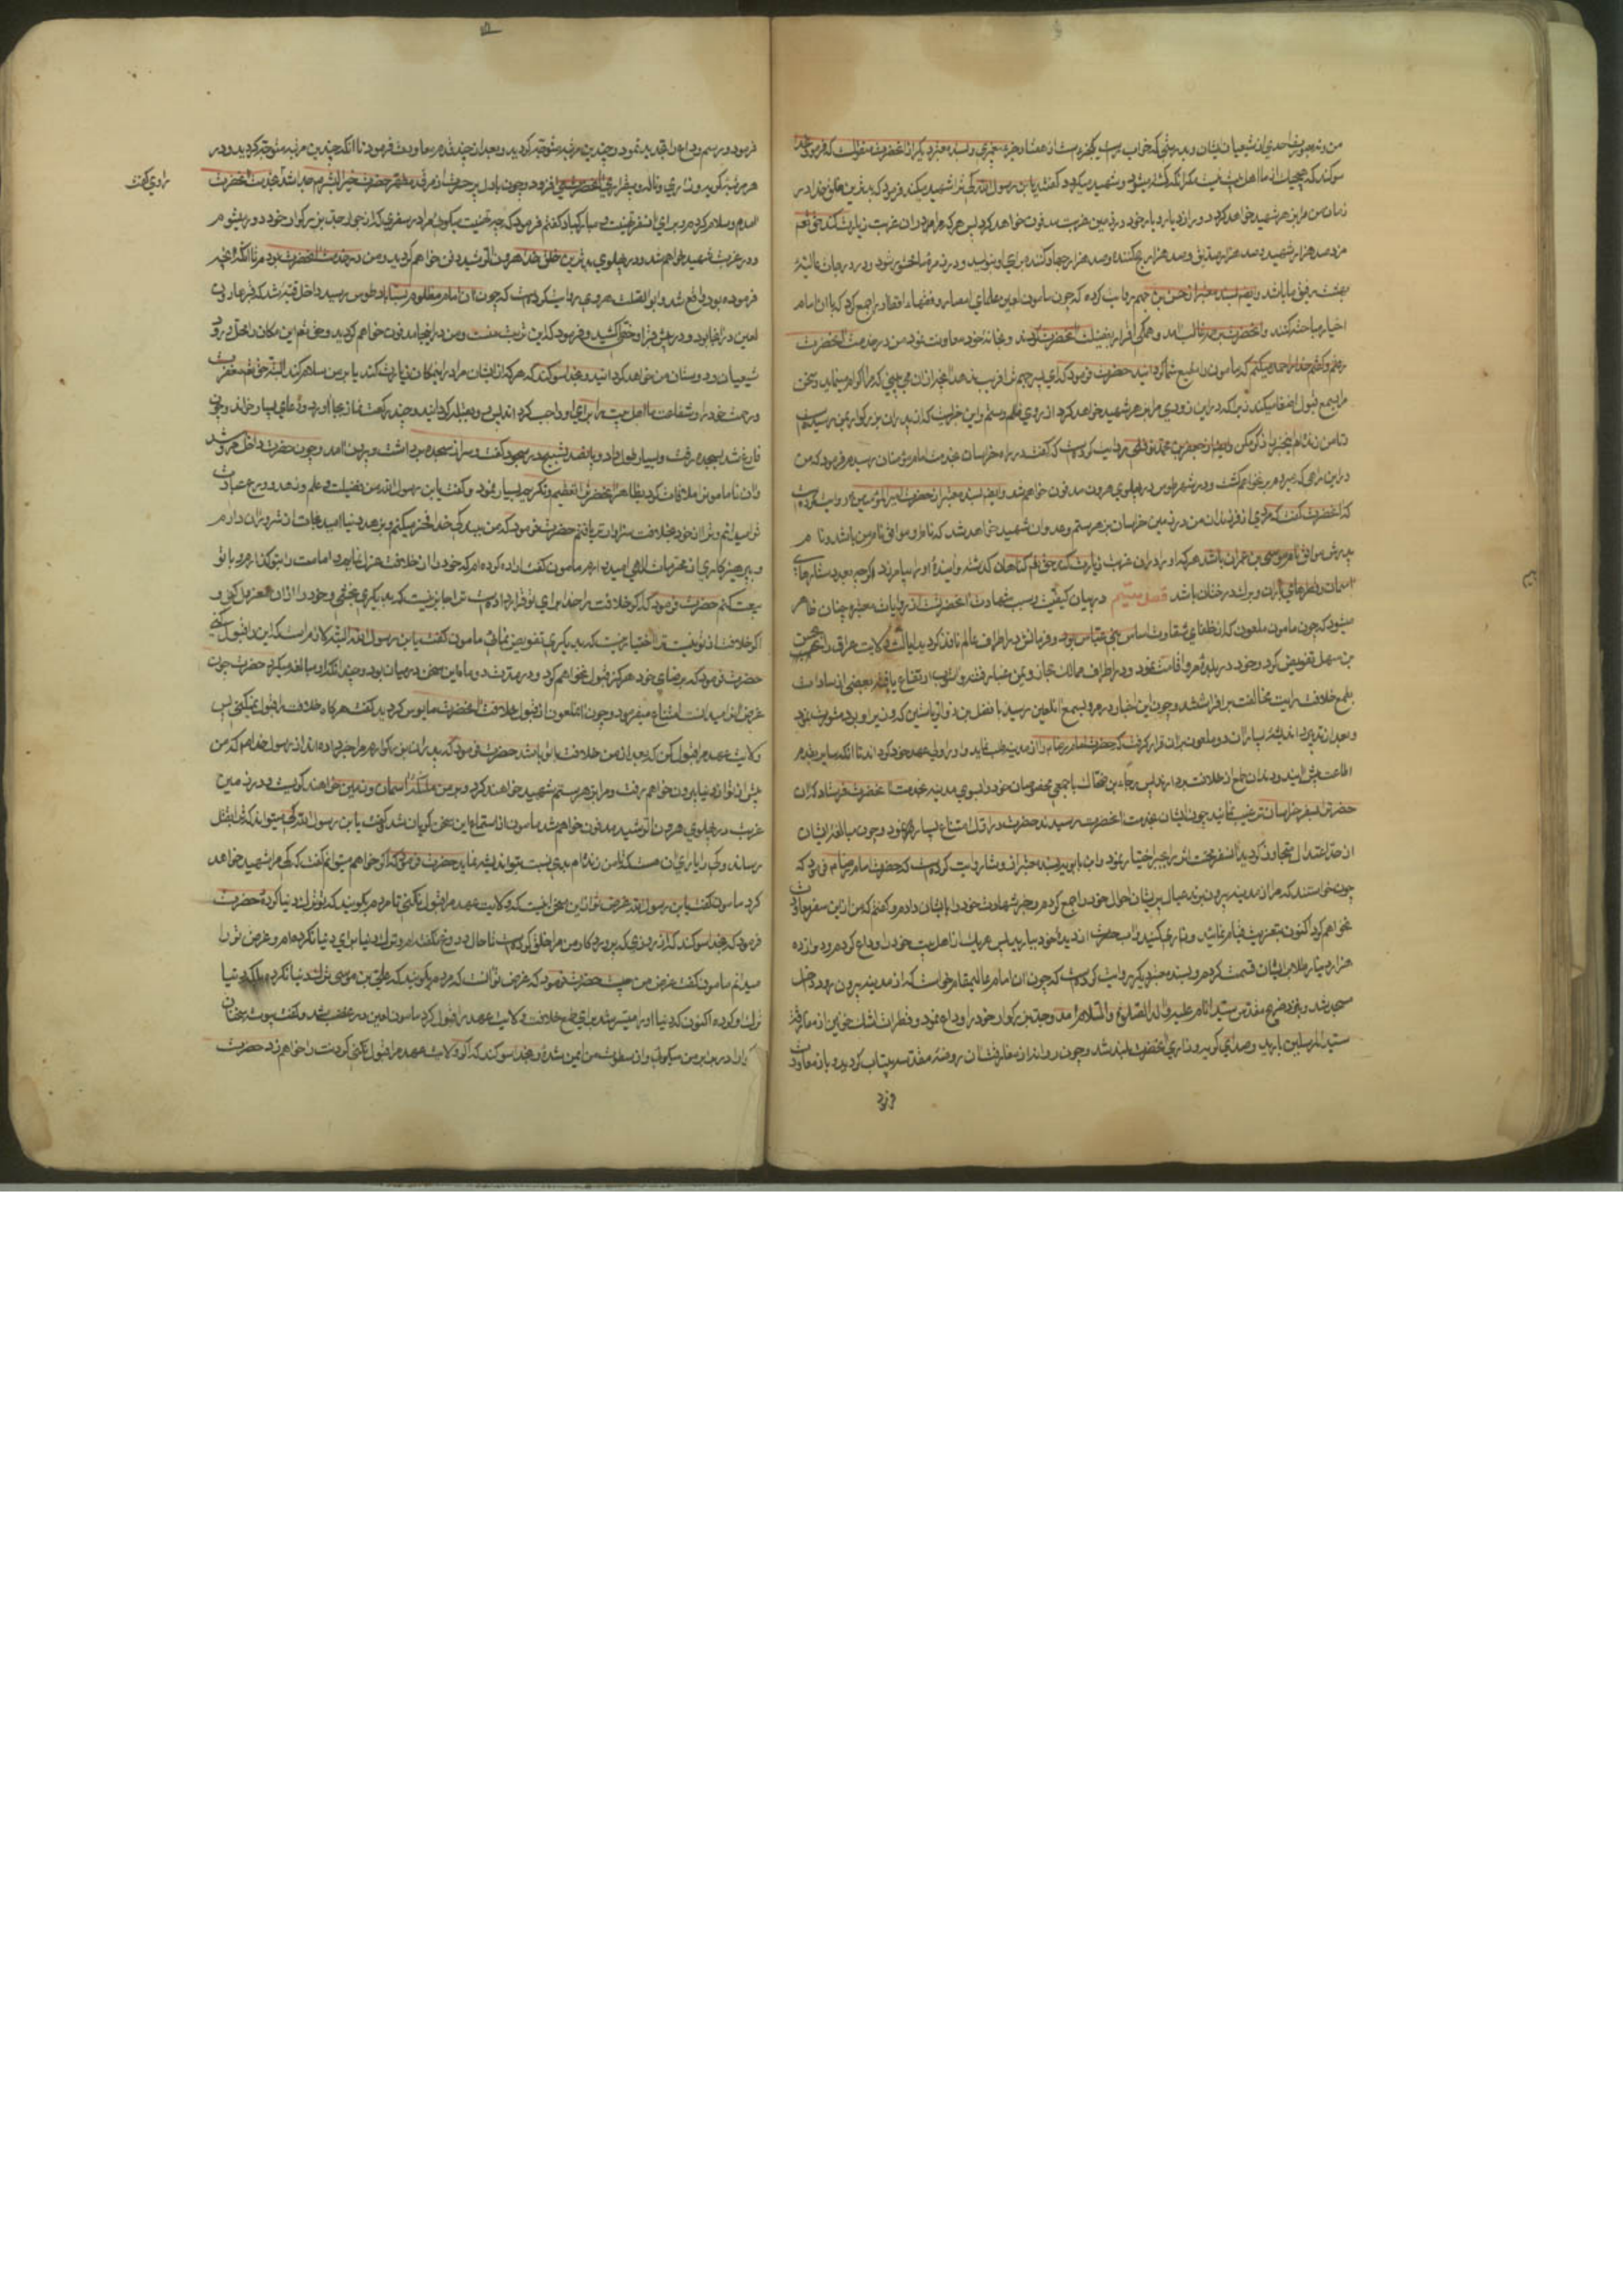 من و نه بصورت احدی از شیعیان ایشان و بدرستی که خواب راست یک جزو است از هفتاد جزو پیغمبری و بسند معتبر دیگر از آنحضرت منقولست که فرمود بخدا
سوکند که هیچیک از ما اهل بیت نیست مکر آنکه کشته میشود و شهید میکردد گفتند یا بن رسول الله کی ترا شهید میکند فرمود که بدترین خلق خدا در
زمان من مرا بزهر شهید خواهد کرد و دور از دیار و یار خود در زمین غربت مدفون خواهد کرد پس هر که مرا در آن غربت زیارت کند حق تعالی
مزد صد هزار شهید و صد هزار صدیق و صد هزار حج کننده و صد هزار جهاد کننده برای او بنویسد و در زمره ما محشور شود و در درجات عالیه
بهشت رفیق ما باشد و ایضا بسند معتبر از حسن بن جهم روایت کرده که چون مامون لعین علمای امصار و فقهاء اقطار را جمع کرد که با آن امام
اخیار مباحثه کنند و آنحضرت بر همه غالب آمد و همگی اقرار بفضیلت آنحضرت کردند و بخانه خود معاودت نمود من در خدمت آنحضرت
رفتم و گفتم خدا را حمد میکنم که مامون را مطیع شما گردانید حضرت فرمود که ای پسر جهم ترا فریب ندهد آنچه از آن می بینی که مرا اکرام مینماید و سخن
مرا بسمع قبول اصغا میکند زیرا که در این زودی مرا بزهر شهید خواهد کرد از روی ظلم و ستم و این خبریست که از پدران بزرگوار بمن رسیده است
تا من زنده ام این خبر را ذکر مکن و ایضا از جعفر بن محمد نوفلی روایت کرده است که گفت در راه خراسان بخدمت امام مؤمنان رسیدم فرمود که من
در این راهی که میروم برنخواهم کشت و در شهر طوس در پهلوی هرون مدفون خواهم شد و ایضا بسند معتبر از حضرت امیر المؤمنین ع روایت کرده است
که آنحضرت گفت که مردی از فرزندان من در زمین خراسان بزهر ستم و عدوان شهید خواهد شد که نام او موافق نام من باشد و نام
پدرش موافق نام موسی بن عمران باشد هر که او را در آن غربت زیارت کند حق تعالی گناهان گذشته و آینده او را بیامرزد اگر چه بعدد ستارهای
آسمان و قطرهای باران و برک درختان باشد فصل ششم در بیان کیفیت و سبب شهادت آنحضرت است از روایات معتبره چنان ظاهر
میشود که چون مامون ملعون که از خلفای شقاوت اساس بنی عباس بود و فرمانش در اطراف عالم نافذ کردید ایالت ولایت عراق را بحسن
بن سهل تفویض کرد و خود در بلده مرو اقامت نمود و در اطراف ممالک حجاز و یمن غبار فتنه و آشوب ارتفاع یافته بعضی از سادات
بطمع خلافت رایت مخالفت برافراشتند و چون این اخبار در مرو بسمع آن لعین رسید با فضل بن سهل ذو الریاستین که وزیر او بود مشورت نمود
و بعد از تدبیر و اندیشه بسیار رای آن دو ملعون بر آن قرار گرفت که حضرت امام رضا را از مدینه طلب نماید و او را ولیعهد خود گرداند تا آنکه سایر بقدم
اطاعت پیش آیند و دندان طمع از خلافت بردارند پس رجاء بن ضحاک را با جمعی مخصوصان خود بسوی مدینه بخدمت آنحضرت فرستاد که آن
حضرت را بسفر خراسان ترغیب نمایند چون ایشان بخدمت آنحضرت رسیدند حضرت در اول امتناع بسیار نمود و چون مبالغه ایشان
از حد اعتدال متجاوز کردید آن سفر محنت اثر را بجبر اختیار نمود و ابن بابویه بسند معتبر از وشا روایت کرده است که حضرت امام رضا فرمود که
چون خواستند که مرا از مدینه بیرون برند عیال پریشان احوال خود را جمع کردم و خبر شهادت خود را بایشان دادم و گفتم که من از این سفر معاودت
نخواهم کرد اکنون بتعزیت قیام نمائید و زاری کنید و آب حسرت از دیده خود بباری پس هر یک از اهل بیت خود را وداع کردم و دوازده
هزار دینار طلا در ایشان قسمت کردم و بسند معتبر دیگر روایت کرده است که چون آن امام عالیمقام خواست که از مدینه بیرون رود داخل
مسجد شد و بنزد ضریح مقدس سید انام علیه و آله الصلوة و السلام آمد و جد بزرگوار خود را وداع نمود و قطرات اشک خونین از مفارقت
سید المرسلین بارید و صدای گریه و زاری آنحضرت بلند شد و چون روانه شد از مفارقت آن روضه مقدسه بیتاب گردیده باز معاودت
فرمود
راوی گفت
فرمود و رسم وداع را تجدید نمود و چندین مرتبه متوجه گردید و بعد از چند قدم معاودت فرمود تا آنکه چندین مرتبه متوجه گردید و در
هر مرتبه گریه و زاری و ناله و بیقراری آنحضرت می افزود و چون با دل پر حسرت از مرقد مطهر حضرت خیر البشر جدا شد بخدمت آنحضرت
آمدم و سلام کردم و برای آن سفر تهنیت و مبارکباد گفتم فرمود که چه تهنیت میگوئی مرا در سفری که از جوار جد بزرگوار خود دور میشوم
و در غربت شهید خواهم شد و در پهلوی بدترین خلق خدا هرون الرشید دفن خواهم گردید و من در خدمت آنحضرت بودم تا آنکه آنچه
فرموده بود واقع شد و ابو الصلت هروی روایت کرده است که چون آن امام مظلوم بسناباد طوس رسید داخل قبه شد که قبر هارون
لعین در آنجا بود و در پیش قبر او خطی کشید و فرمود که این تربت منست و من در اینجا مدفون خواهم گردید و حق تعالی این مکان را محل ورود
شیعیان و دوستان من خواهد گردانید و بخدا سوکند که هر که از ایشان مرا در این مکان زیارت کند یا بر من سلام کند البته حق تعالی مغفرت
و رحمت خود را و شفاعت ما اهل بیت را برای او واجب گرداند پس رو بقبله گردانید و چند رکعت نماز بجا آورد و دعای بسیار خواند و چون
فارغ شد بسجده رفت و بسیار طول داد و پانصد تسبیح در سجود گفت و سر از سجده برداشت و بیرون آمد و چون حضرت داخل مرو شد
و آن با مامون ملاقات کرد بظاهر آنحضرت را تعظیم و تکریم بسیار نمود و گفت یا بن رسول الله من فضیلت و علم و زهد و ورع عبادت
ترا میدانم و ترا از خود بخلافت سزاوارتر یافتم حضرت فرمود که من ببندگی خدا فخر میکنم و بزهد دنیا امید نجات از شر آن دارم
و بپرهیزکاری از محرمات الهی امید دارم مامون گفت اراده کرده ام که خود را از خلافت عزل نمایم و امامت را بتو گذارم و با تو
بیعت کنم حضرت فرمود که اگر خلافت را خدا برای تو قرار داده است ترا جایز نیست که بدیگری بخشی و خود را از آن معزول کنی و
اگر خلافت از تو نیست ترا اختیار نیست که بدیگری تفویض نمائی مامون گفت یا بن رسول الله البته لازم است که این را قبول کنی
حضرت فرمود که برضای خود هرگز قبول نخواهم کرد و در مدت دو ماه این سخن در میان بود و چندانکه او مبالغه میکرد حضرت چون
غرض او را میدانست امتناع میفرمود و چون آن ملعون از قبول خلافت آنحضرت مایوس گردید گفت هر گاه خلافت را قبول نمیکنی پس
ولایت عهد مرا قبول کن که بعد از من خلافت با تو باشد حضرت فرمود که پدران بزرگوارم مرا خبر داده اند از رسول خدا که من
پیش از تو از دنیا بیرون خواهم رفت و مرا بزهر ستم شهید خواهند کرد و بر من ملائکه آسمان و زمین خواهند گریست و در زمین
غربت در پهلوی هرون الرشید مدفون خواهم شد مامون از استماع این سخن گریان شد گفت یا بن رسول الله کی میتواند که ترا بقتل
رساند و کی را یارای آن هست که تا من زنده ام بدی بست تواند اندیشه نماید حضرت فرمود که اگر خواهم میتوانم گفت که کی مرا شهید خواهد
کرد مامون گفت یا بن رسول الله غرض تو از این سخن اینست که ولایت عهد مرا قبول نکنی تا مردم بگویند که تو ترک دنیا کرده حضرت
فرمود که بخدا سوکند که از روزی که پروردگار من مرا خلق کرده است تا حال دروغ نگفته ام و ترک دنیا برای دنیا نکرده ام و غرض ترا
میدانم مامون گفت غرض من چیست حضرت فرمود که غرض تو آنست که مردم بگویند که علی بن موسی ترک دنیا نکرده بلکه دنیا
ترک او کرده اکنون که دنیا او را میسر شد برای طمع خلافت ولایت عهد را قبول کرد مامون لعین در غضب شد و گفت پیوسته سخنان
ناگوار در برابر من میگوئی و از سطوت من ایمن شده بخدا سوکند که اگر ولایت عهد مرا قبول نکنی گردنت را خواهم زد حضرت